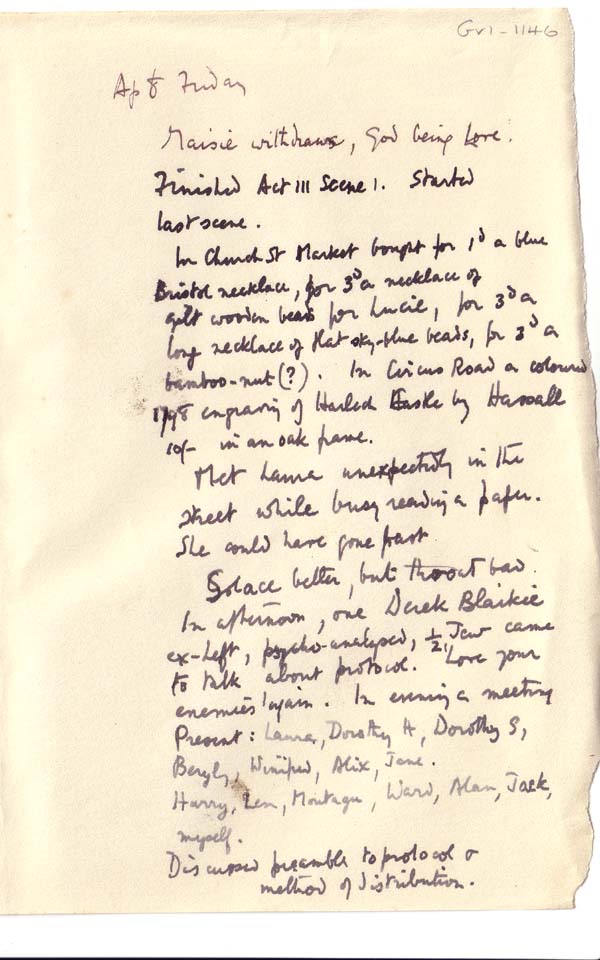 Gv1-1146
Ap 8 Friday
Maisie withdraws, God being Love.
Finished Act III Scene 1. Started
last scene.
In Church St Market bought for 1d a blue
Bristol necklace, for 3d a necklace of
gilt wooden beads for Lucie, for 3d a
long necklace of flat sky-blue beads, for 3d a
bamboo-nut (?). In Circus Road a coloured
1798 engraving of Harlech Castle by Hassall
10/- in an oak frame.
Met Laura unexpectedly in the
street while busy reading a paper.
She could have gone past
Solace better, but throat bad.
In afternoon, one Derek Blaikie
ex-Left, psycho-analysed, ½ Jew came
to talk about protocol. 'Love your
enemies' again. In evening a meeting
Present: Laura, Dorothy H, Dorothy S,
Beryl, Winifred, Alix, Jane.
Harry, Len, Montague, Ward, Alan, Jack,
myself.
Discussed preamble to protocol &
method of distribution.